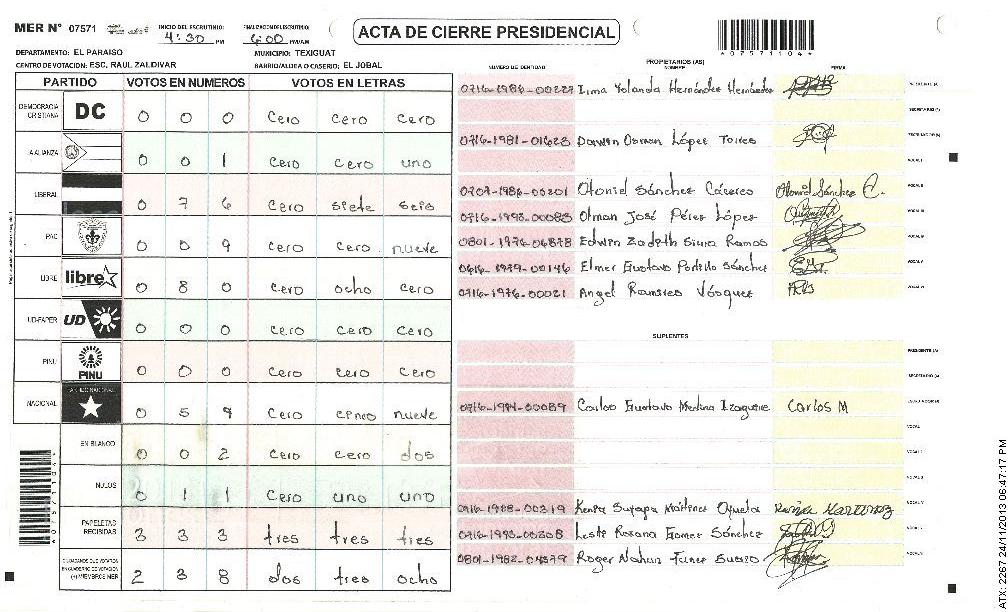 MER N° 07571
INICIO DEL ESCRUTINIO
4:30 PM
FINALIZACION DEL ESCRUTINIO
6:00 PM/AM
ACTA DE CIERRE PRESIDENCIAL
*07571104*
DEPARTAMENTO: EL PARAISO
MUNICIPIO: TEXIGUAT
CENTRO DE VOTACION: ESC. RAUL ZALDIVAR
BARRIO/ALDEA O CASERIO: EL JOBAL
PARTIDO VOTOS EN NUMEROS VOTOS EN LETRAS
DEMOCRACIA CRISTIANA DC 0 0 0 Cero cero cero
LA ALIANZA 0 0 1 Cero cero uno
LIBERAL 0 7 6 Cero siete seis
PAC 0 0 9 Cero cero nueve
LIBRE libre 0 8 0 Cero ocho cero
UD-FAPER UD 0 0 0 Cero cero cero
PINU PINU 0 0 0 Cero cero cero
NACIONAL PARTIDO NACIONAL 0 5 9 Cero cinco nueve
EN BLANCO 0 0 2 Cero cero dos
NULOS 0 1 1 Cero uno uno
PAPELETAS RECIBIDAS 3 3 3 tres tres tres
CIUDADANOS QUE VOTARON EN CUADERNO DE VOTACION (+) MIEMBROS MER 2 3 8 dos tres ocho
PROPIETARIOS (AS)
NUMERO DE IDENTIDAD NOMBRE FIRMA
Irma Yolanda Hernández Hernández PRESIDENTE (A)
SECRETARIO (A)
0716-1981-01623 Darwin Osman López Torres ESCRUTADOR (A)
VOCAL I
0709-1986-00201 Otoniel Sánchez Cáceres Otoniel Sánchez C. VOCAL II
0716-1993-00083 Olman José Pérez López VOCAL III
Edwin Ramos VOCAL IV
Elmer Gustavo Portillo Sánchez VOCAL V
0716-1976-00021 Angel Ramires Vásquez VOCAL VI
SUPLENTES
PRESIDENTE (A)
SECRETARIO (A)
0716-1994-00089 Carlos Gustavo Medina Izaguirre Carlos M ESCRUTADOR (A)
VOCAL I
VOCAL II
VOCAL III
Kenia Suyapa Martinez VOCAL IV
Rosana Gomez Sánchez VOCAL V
Roger Nahun VOCAL VI
*07571104*
ATX: 2267 24/11/2013 06:47:17 PM